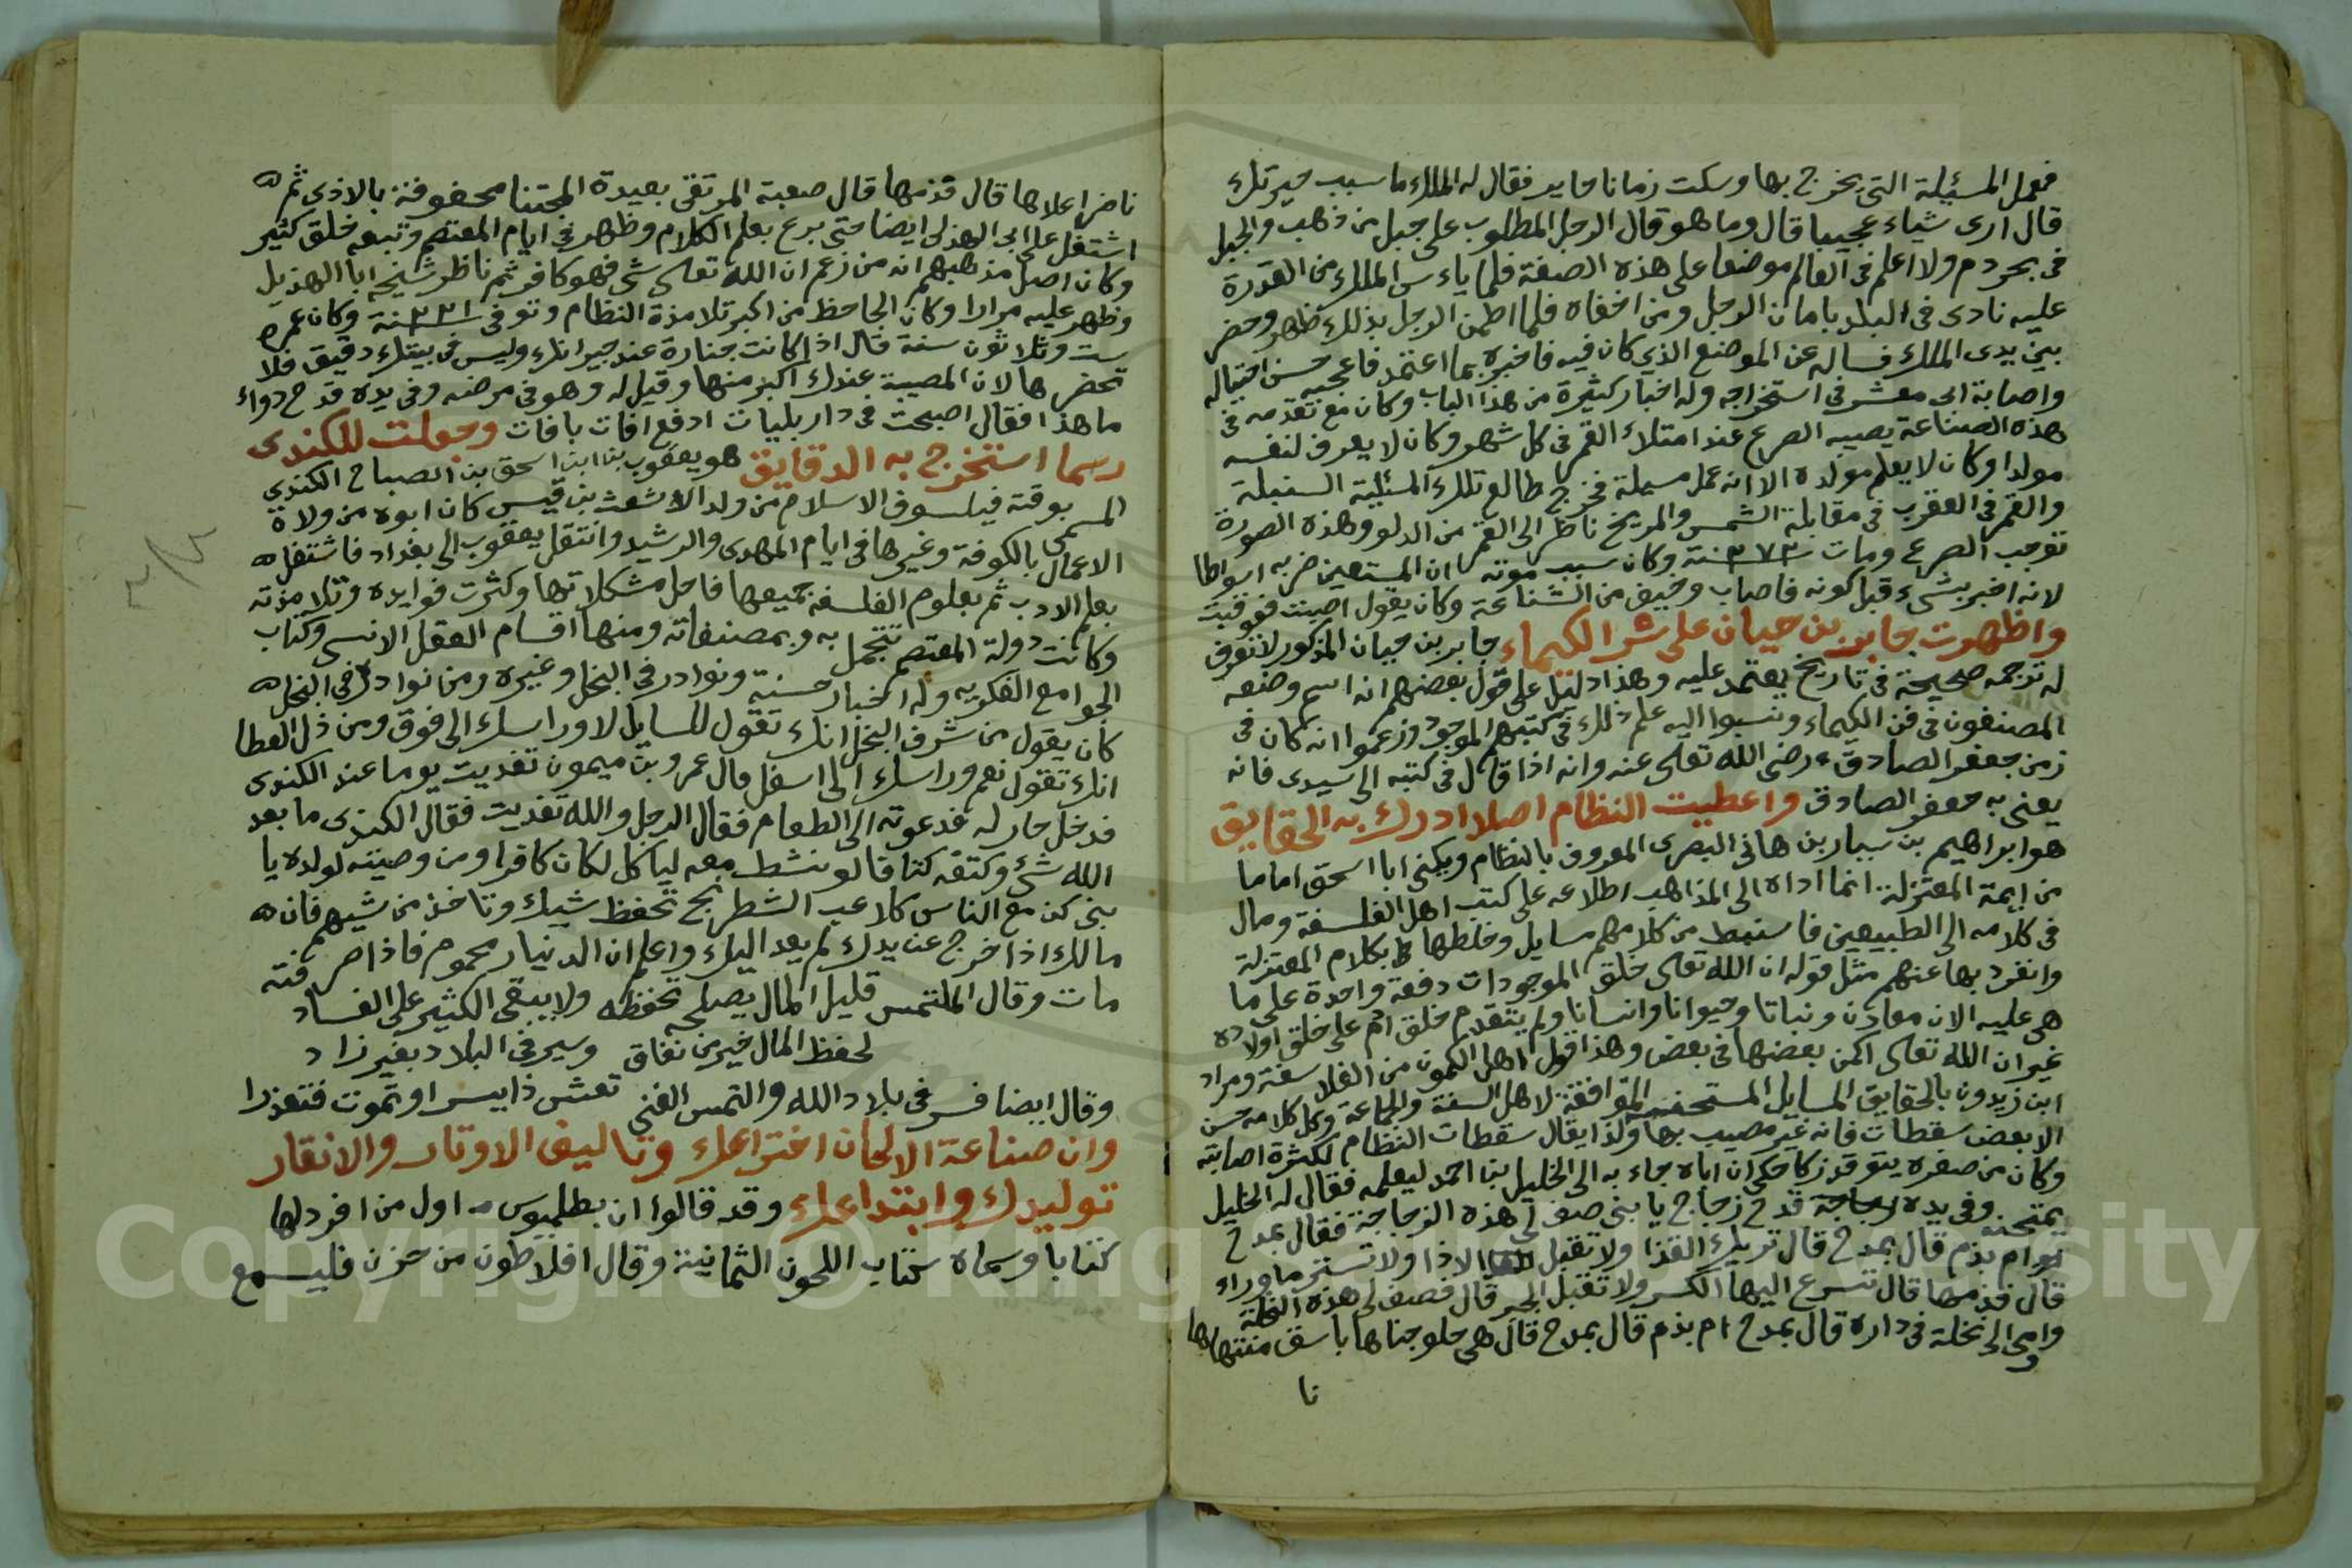 فعمل المسئلة التي يخرج بها وسكت زمانا حاير فقال له الملك ما سبب حيرتك
قال ارى شياء عجيبا قال وما هو قال الرجل المطلوب على جبل من ذهب والجبل
في بحر دم ولا اعلم في العالم موضعا على هذه الصفة فلما ياء س الملك من القدرة
عليه نادى في البلد بامان الرجل ومن اخفاه فلما اطمن الرجل بذلك ظهر وحضر
بين يدى الملك فساله عن الموضع الذي كان فيه فاخبره بما اعتمد فاعجبه حسن احتياله
واصابة ابى معشر في استخراجه وله اخبار كثيرة من هذا الباب وكان مع تقدمه في
هذه الصناعة يصيبه الصرع عند امتلاء القمر في كل شهر وكان لا يعرف لنفسه
مولدا وكان لا يعلم مولده الا انه عمل مسيلة فخرج طالع تلك المسئلية السنبلة
والقمر في العقرب في مقابلة الشمس والمريخ ناظر الى القمر من الدلو وهذه الصورة
توجب الصرع ومات سنة ٢٧٣ وكان سبب موته ان المستعين ضربه اسواطا
لانه اخبر بشيء قبل كونه فاصاب وخيف من الشناعة وكان يقول اصبت فعوقبت
واظهرت جابر بن حيان على سر الكيماء جابر بن حيان المذكور لا تعرف
له ترجمه صحيحة في تاريخ يعتمد عليه وهذا دليل على قول بعضهم انه اسم وضعه
المصنفون في فن الكيماء ونسبوا اليه علم ذلك في كتبهم الموجود وزعموا انه كان في
زمن جعفر الصادق رضى الله تعالى عنه وانه اذا قال في كتبه الى سيدى فانه
يعنى به جعفر الصادق واعطيت النظام اصلا ادرك به الحقايق
هو ابراهيم بن سيار بن هاني البصرى المعروف بالنظام ويكنى ابا اسحق اماما
من ايمة المعتزلة انما اداه الى المذاهب اطلاعه على كتب اهل الفلسفة ومال
في كلامه الى الطبيعين فاستنبط من كلامهم مسايل وخلطها بكلام المعتزلة
وانفرد بها عنهم مثل قوله ان الله تعالى خلق الموجودات دفعة واحدة على ما
هي عليه الان معادن ونباتا وحيوانا وانسانا ولم يتقدم خلق ادم على خلق اولاده
غير ان الله تعالى اكمن بعضها في بعض وهذا قول اهل الكمون من الفلاسفة ومراد
ابن زيدون بالحقايق المسايل المستحسنة الموافقة لاهل السنة والجماعة وكل كلامه حسن
الا بعض سقطات فانه غير مصيب بها ولذا يقال سقطات النظام لكثرة اصابته
وكان من صغره يتوقد ذكا حكى ان اباه جاء به الى الخليل بن احمد ليعلمه فقال له الخليل
يمتحنه وفي يده قدح زجاج يا بنى صف لي هذه الزجاجة فقال بمدح
ام بذم قال بمدح قال تريك القذا ولا تقبل الاذا ولا تستر ما وراء
قال فذمها قال تسرع اليها الكسر ولا تقبل الجبر قال فصف لى هذه النخلة
واومى الى نخلة في داره قال بمدح ام بذم قال بمدح قال هي حلو جناها باسق منتهاها
نا
ناضر اعلاها قال فذمها قال صعبة المرتقى بعيدة المجتنا محفوفة بالاذى ثم
اشتغل على ابى الهذلى ايضا حتى برع بعلم الكلام وظهر في ايام المعتصم وتبعه خلق كثير
وكان اصل مذهبهم انه من زعم ان الله تعالى شى فهو كافر ثم ناظر شيخه ابا الهذيل
وظهر عليه مرارا وكان الجاحظ من اكبر تلامذة النظام وتوفى سنة ٢٣١ وكان عمره
ست وثلاثون سنة قال اذا كانت جنازة عند جيرانك وليس في بيتك دقيق فلا
تحضرها لان المصيبة عندك اكبر منها وقيل له وهو في مرضه وفي يده قدح دواء
ما هذا فقال اصبحت في دار بليات ادفع افات بافات وجعلت للكندى
رسما استخرج به الدقايق هو يعقوب بن اسحق بن الصباح الكندي
المسمى بوقته فيلسوف الاسلام من ولد الاشعث بن قيس كان ابوه من ولاة
الاعمال بالكوفة وغيرها في ايام المهدى والرشيد وانتقل يعقوب الى بغداد فاشتغل
بعلم الادب ثم بعلوم الفلسفه جميعها فاحل مشكلاتها وكثرت فوايده وتلامذته
وكانت دولة المعتصم تتجمل به وبمصنفاته ومنها اقسام العقل الانسى وكتاب
الجوامع الفكريه وله اخبار حسنة ونوادر في البخل وغيره ومن نوادره في البخل
كان يقول من شرف البخل انك تقول للسايل لا وراسك الى فوق ومن ذل العطا
انك تقول نعم وراسك الى اسفل قال عمرو بن ميمون تغديت يوما عند الكندى
فدخل جار له فدعوته الى الطعام فقال الرجل والله تغديت فقال الكندى ما بعد
الله شىء وكتفه كتفا لو نشط معه لياكل لكان كافرا ومن وصيته لولده يا
بنى كن مع الناس كلاعب الشطرنج تحفظ شيك وتاخذ من شيهم فان
مالك اذا خرج عن يدك لم يعد اليك واعلم ان الدنيار محموم فاذا صرفته
مات وقال الملتمس قليل المال يصلحه تحفظه ولا يبقى الكثير على الفساد
لحفظ المال خير من نفاق وسير في البلاد بغير زاد
وقال ايضا فسر في بلاد الله والتمس الغنى تعش ذا يسر او تموت فتعذرا
وان صناعة الالحان اختراعك وتاليف الاوتار والانقار
توليدك وابتداعك وقد قالوا ان بطلميوس اول من افرد لها
كتابا وسماه كتاب اللحون الثمانية وقال افلاطون من حزن فليسمع